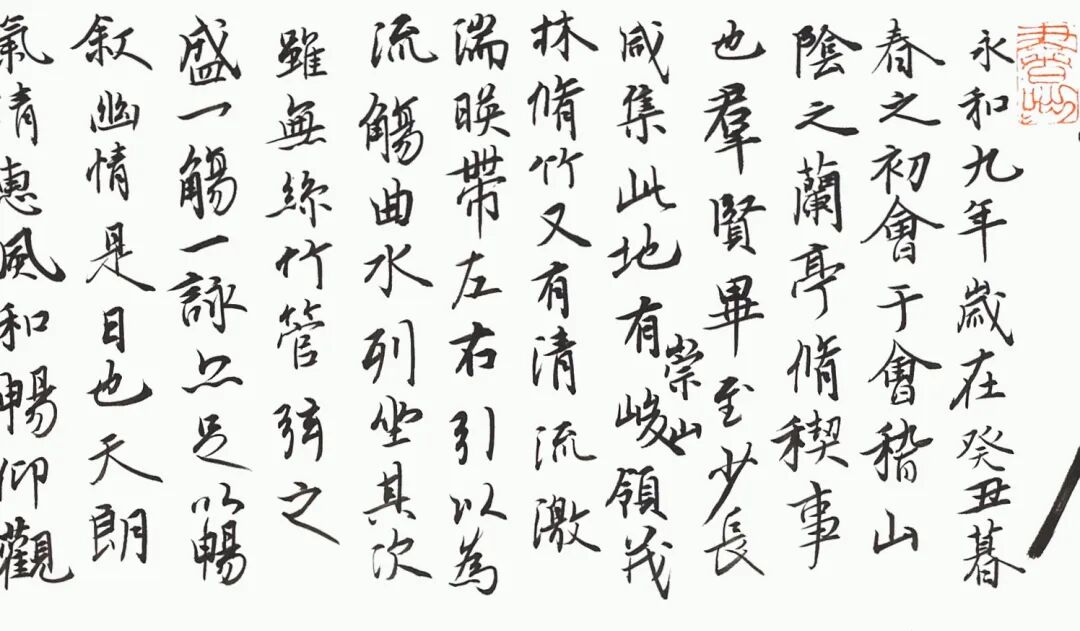 永和九年歲在癸丑暮
春之初會于會稽山
陰之蘭亭脩稧事
也羣賢畢至少長
咸集此地有崇山峻領茂
林脩竹又有清流激
湍暎帶左右引以為
流觴曲水列坐其次
雖無絲竹管弦之
盛一觴一詠亦足以暢
叙幽情是日也天朗
氣清惠風和暢仰觀